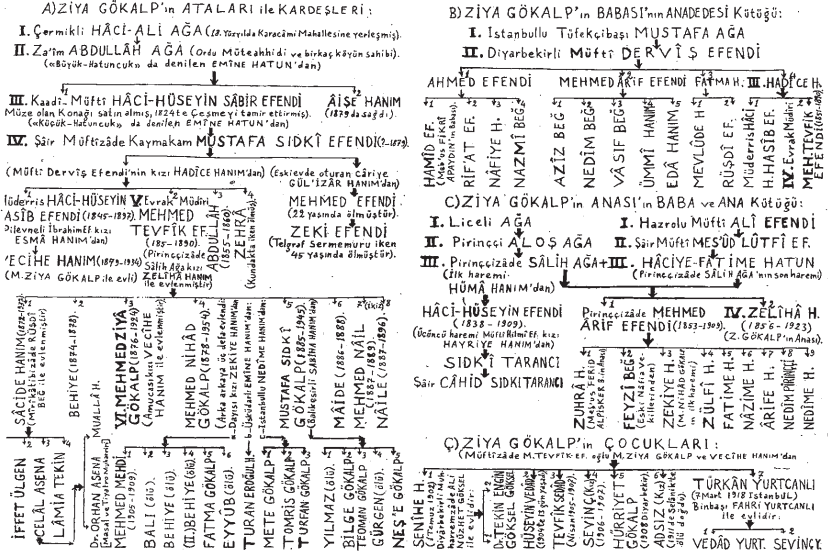 A)ZİYA GÖKALP'ın ATALARI ile KARDEŞLERİ:
I. Çermikli HÂCİ-ALİ AĞA (18. Yüzyılda Karacâmi Mahallesine yerleşmiş).
II. Za'îm ABDULLÂH AĞA (Ordu Müteahhidi ve birkaç köyün sahibi).
(«Büyük-Hatuncuk» da denilen EMÎNE HATUN'dan)
III. Kaadî-Müftî HÂCİ-HÜSEYİN SÂBİR EFENDİ
ÂİŞE HANIM
Müze olan Konağı satın almış, 1824te Çeşmeyi tamir ettirmiş).
(1879 da sağdı).
(«Küçük-Hatuncuk» da denilen EMÎNE HATUN'dan)
IV. Şâir Müftîzâde Kaymakam MUSTAFA SIDKÎ EFENDİ (?-1879).
(Müftî Dervîş Efendi'nin kızı HADÎCE HANIM'dan)
(Eskievde oturan Câriye
GÜL'İZÂR HANIM'dan)
Müderris HÂCİ-HÜSEYİN
HASÎB EFENDİ (1845-1897).
ESMÂ HANIM'dan)
VECÎHE HANIM (1879-1934)
(M. ZİYA GÖKALP ile evli)
V. Evrak Müdîri
MEHMED
TEVFÎK EF.
(185 -1890).
(Pirinççizâde
Sâlih Ağa kızı
ZELÎHÂ HANIM
ile evlenmiştir)
ABDULLÂH
(1855-1860)
ZEHRÂ
(Kundakta iken ölmüş).
MEHMED EFENDİ
(22 yaşında ölmüştür).
ZEKİ EFENDİ
(Telgraf Sermemuru iken
45 yaşında ölmüştür).
SÂCİDE HANIM
BEG ile evlenmiş)
BEHİYE (1874-1878).
VI. MEHMED ZİYÂ
GÖKALP (1876-1924)
(Amucasıkızı VECÎHE
HANIM ile evlenmiş)
MEHMED NİHÂD
GÖKALP (1878-1954).
(Arka arkaya üç defa evlendi
a-Dayısı kızı ZEKİYE HANIM'dan
b-Üsküdarlı EMİNE HANIM'dan:
c-İstanbullu NEDÎME HANIM'dan:
MUSTAFA SIDKÎ
GÖKALP (1885-1945).
(Balıkesirli SABİHA HANIM'dan)
MÂİDE (1886-1888).
MEHMED NÂİL
(1887-1889).
NÂİLE (1887-1896).
İFFET ÜLGEN
CELÂL ASENA
LÂMİA TEKİN
MUALLÂ H.
Dr. ORHAN ASENA
MEHMED MEHDİ
(1905-1909).
BALİ (ölü).
BEHİYE (ölü).
(II.) BEHİYE (ölü)
FATMA GÖKALP
EYYÛB (ölü).
TURAN ERDOĞLU
METE GÖKALP
TOMRİS GÖKALP
TURFAN GÖKALP
YILMAZ (ölü).
BİLGE GÖKALP
TEOMAN GÖKALP
GÜRGEN (ölü).
NEŞ'E GÖKALP
B) ZİYA GÖKALP'in BABASI'nın ANADEDESİ Kütüğü:
I. İstanbullu Tüfekçibaşı MUSTAFA AĞA
II. Diyarbekirli Müftî DERVÎŞ EFENDİ
AHMED EFENDİ
MEHMED ÂRİF EFENDİ
FATMA H.
III. HADÎCE H.
HAMÎD EF.
RİF'AT EF.
NÂFİYE H.
NAZMÎ BEĞ
AZÎZ BEĞ
NEDÎM BEĞ
VASIF BEĞ
ÜMMÎ HANIM
EDÂ HANIM
MEVLÛDE H.
RÜŞDÎ EF.
Müderris Hâci
H. HASÎB EF.
IV. Evrak Müdîri
MEH. TEVFİK
EFENDİ
C) ZİYA GÖKALP'in ANASI'nın BABA ve ANA Kütüğü:
I. Liceli AĞA
II. Pirinççi ALOŞ AĞA
III. Pirinççizâde SÂLİH AĞA +
(İlk haremi
HÜMÂ HANIM'dan)
I. Hazrolu Müftî ALÎ EFENDİ
II. Şâir Müftî MES'ÛD LÛTFÎ EF.
III. HÂCİYE-FATİME HATUN
(Pirinççizâde SÂLİH AĞA'nın son haremi)
HÂCİ-HÜSEYİN EFENDİ
(1838-1909).
(Üçüncü haremi Müftî Hilmî Ef. kızı
HAYRİYE HANIM'dan)
SIDKÎ TARANCI
Şâir CÂHİD SIDKI TARANCI
Pirinççizâde MEHMED
ÂRİF EFENDİ (1853-1909).
IV. ZELÎHÂ H.
(1856-1923)
(Z. GÖKALP'in Anası).
ZUHRÂ H.
FEYZÎ BEĞ
(Eski Nâfia Ve-
killerinden)
ZEKİYE H.
ZÜLFÎ H.
FATİME H.
NÂZİME H.
ÂRİFE H.
NEDİM PİRİNÇÇİ
NEDİME H.
Ç) ZİYA GÖKALP'in ÇOCUKLARI:
(Müftîzâde M. TEVFİK EF. oğlu M. ZİYA GÖKALP ve VECÎHE HANIM'dan
SENÎHE H.
Dr. TEKİN ENGİN
GÖKSEL GÖKSEL
HÜSEYİN VEDAD
TEVFİK SEDAD
SEVİNÇ (Kız)
(1906-1907).
HÜRRİYET
GÖKALP
ADSIZ (Kız)
ölü doğdu).
TÜRKÂN YURTCANLI
(7 Mart 1918 İstanbul).
Binbaşı FAHRİ YURTCANLI
ile evlidir:
VEDÂD YURT.
SEVİNÇ Y.